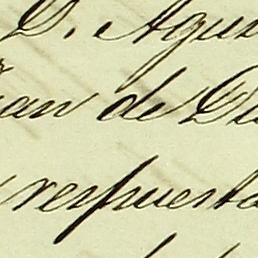 D. Agus
an de D
respuesta